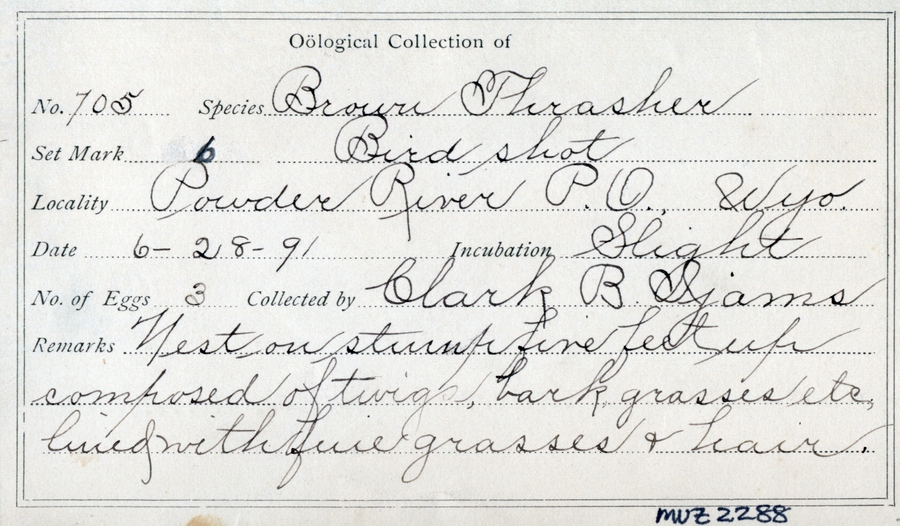 Oölogical Collection of
No. 705 Species Brown Thrasher
Set Mark 6 Bird shot
Locality Powder River P.O., Wyo.
Date 6-28-91 Incubation Slight
No. of Eggs 3 Collected by Clark B.
Remarks Nest on stump five feet up
composed of twigs, bark, grasses etc,
lined with fine grasses & hair.
MVZ 2288